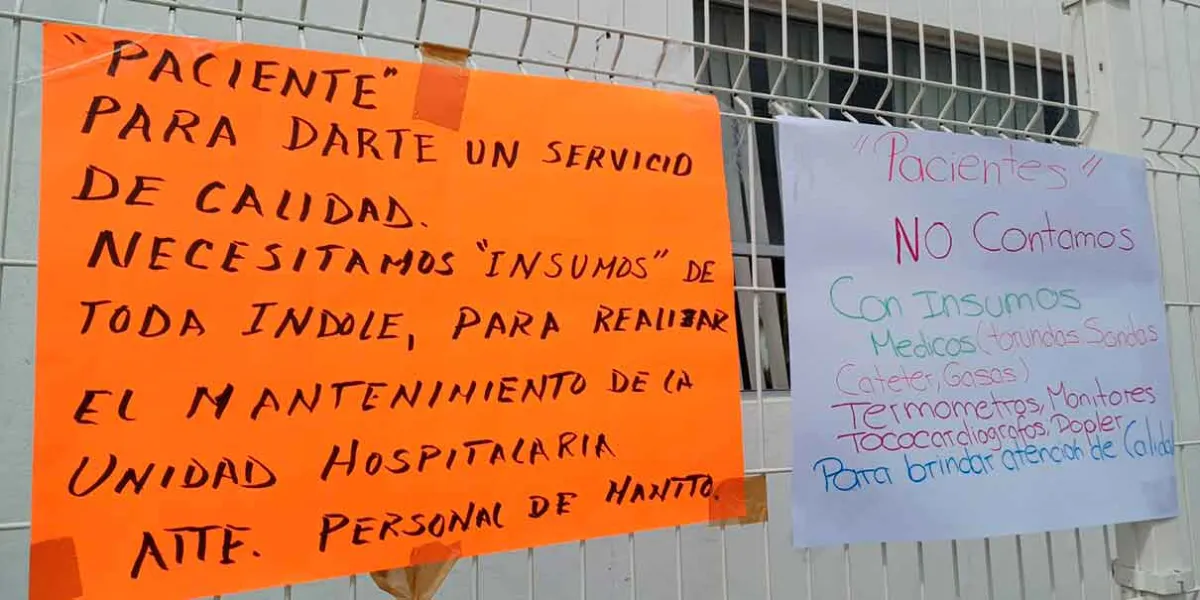 "PACIENTE"
PARA DARTE UN SERVICIO
DE CALIDAD.
NECESITAMOS "INSUMOS" DE
TODA INDOLE, PARA REALIZAR
EL MANTENIMIENTO DE LA
UNIDAD HOSPITALARIA
ATTE. PERSONAL DE MANTTO.
"Pacientes"
NO Contamos
Con Insumos
Medicos (torundas, Sondas
Cateter, Gasas)
Termometros, Monitores
Tococardiografos, Dopler
Para brindar atención de Calidad